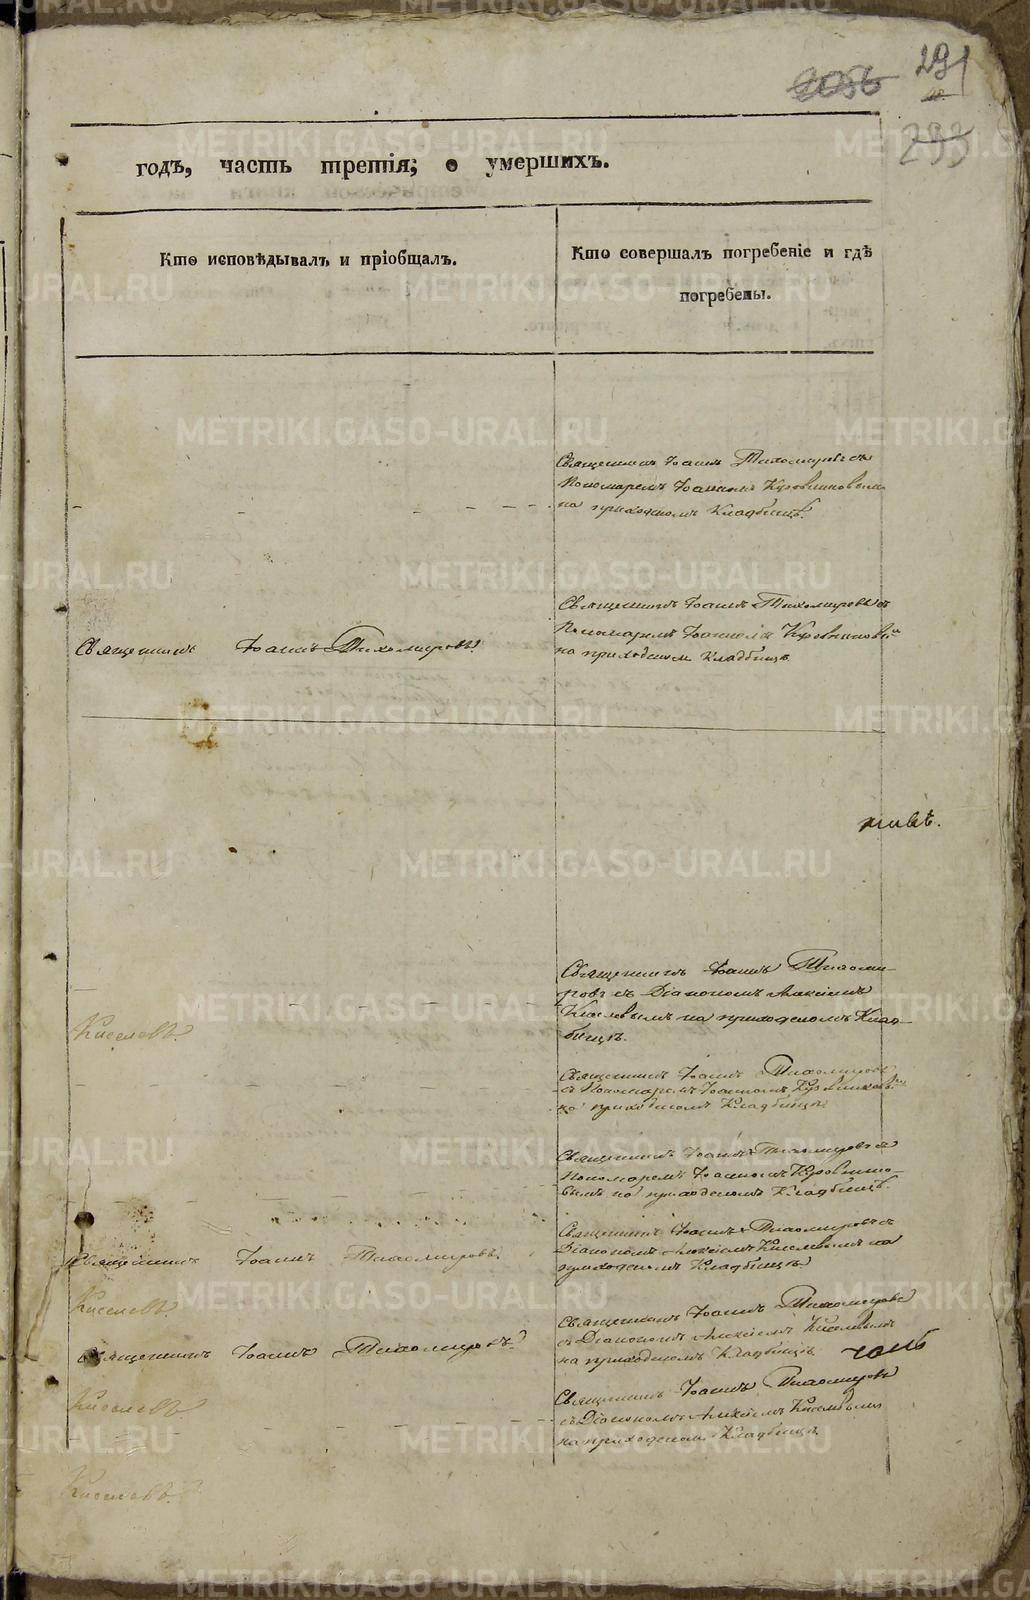 2056
291
293
годъ, часть третія; о умершихъ.
Кто исповѣдывалъ и пріобщалъ.
Кто совершалъ погребеніе и гдѣ
погребены.
Священникъ Іоаннъ Тихомировъ съ
Пономаремъ Іоанномъ Кузовниковымъ
на приходскомъ Кладбищѣ.
Священникъ Іоаннъ Тихомировъ съ
Пономаремъ Іоанномъ
на приходскомъ Кладбищѣ
Священникъ Іоаннъ Тихомировъ.
Священникъ Іоаннъ Тихоми-
ровъ съ Діакономъ Алексіемъ
Киселевымъ на приходскомъ Клад-
бищѣ.
Киселевъ
Священникъ Іоаннъ Тихомировъ
съ Пономаремъ Іоанномъ
на приходскомъ Кладбищѣ
Священникъ Іоаннъ Тихомировъ съ
Пономаремъ Іоанномъ
на приходскомъ Кладбищѣ.
Священникъ Іоаннъ Тихомировъ съ
Діакономъ Алексіемъ Киселевымъ на
приходскомъ Кладбищѣ
Священникъ Іоаннъ Тихомировъ.
Киселевъ
Священникъ Іоаннъ Тихомировъ
съ Діакономъ Алексіемъ Киселевымъ
на приходскомъ Кладбищѣ
Священникъ Іоаннъ Тихомировъ.
Священникъ Іоаннъ Тихомировъ
съ Діакономъ Алексіемъ Киселевымъ
на приходскомъ Кладбищѣ
Киселевъ
Киселевъ.
METRIKI.GASO-URAL.RU